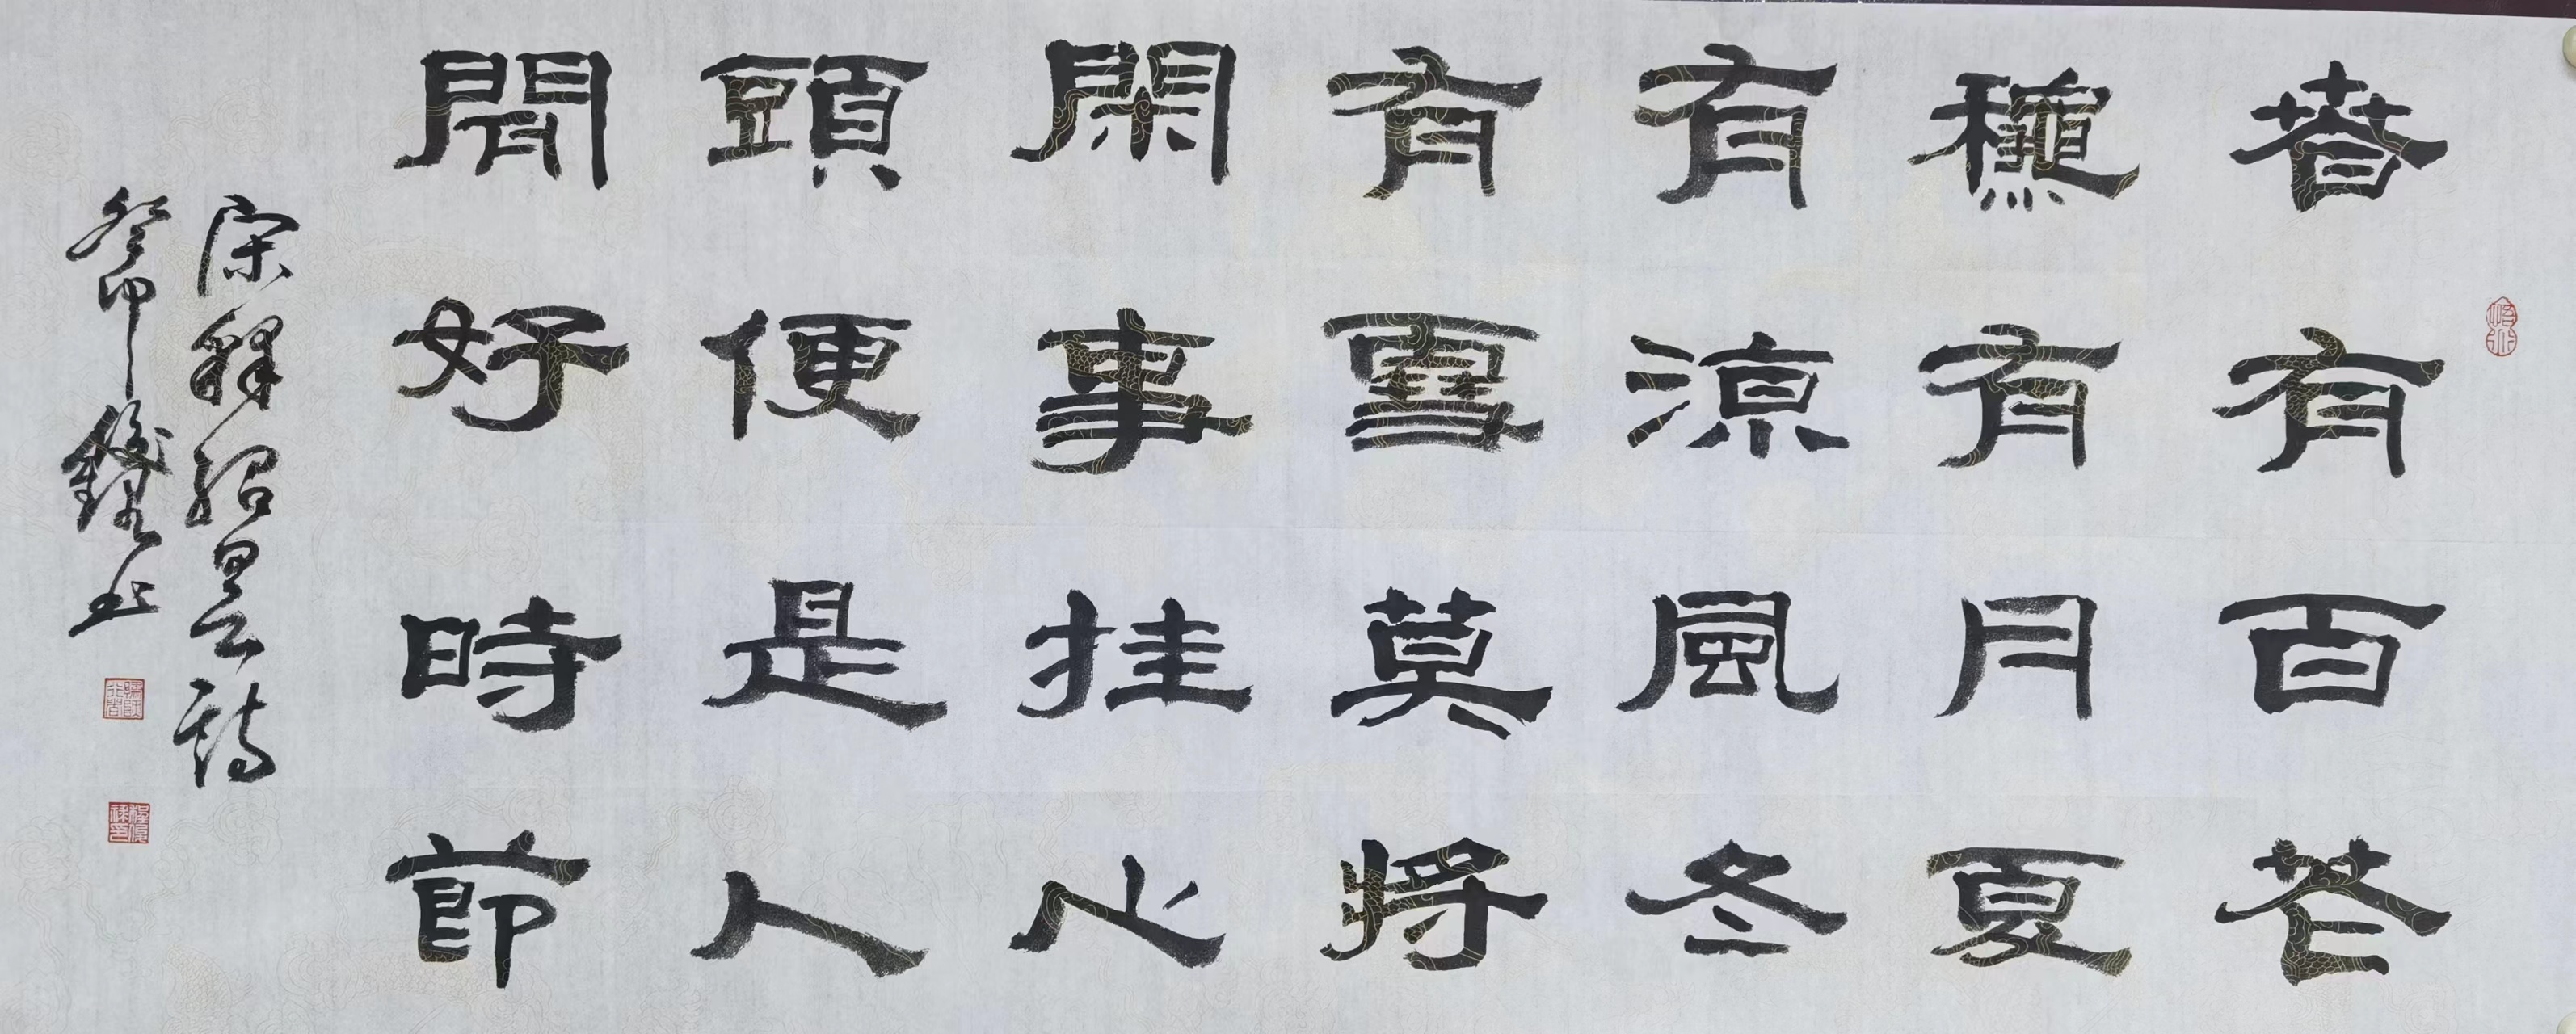 春有百花
龝有月夏
有涼風冬
有雪莫將
閑事挂心
頭便是人
閒好時節
宋釋紹曇詩
癸卯書